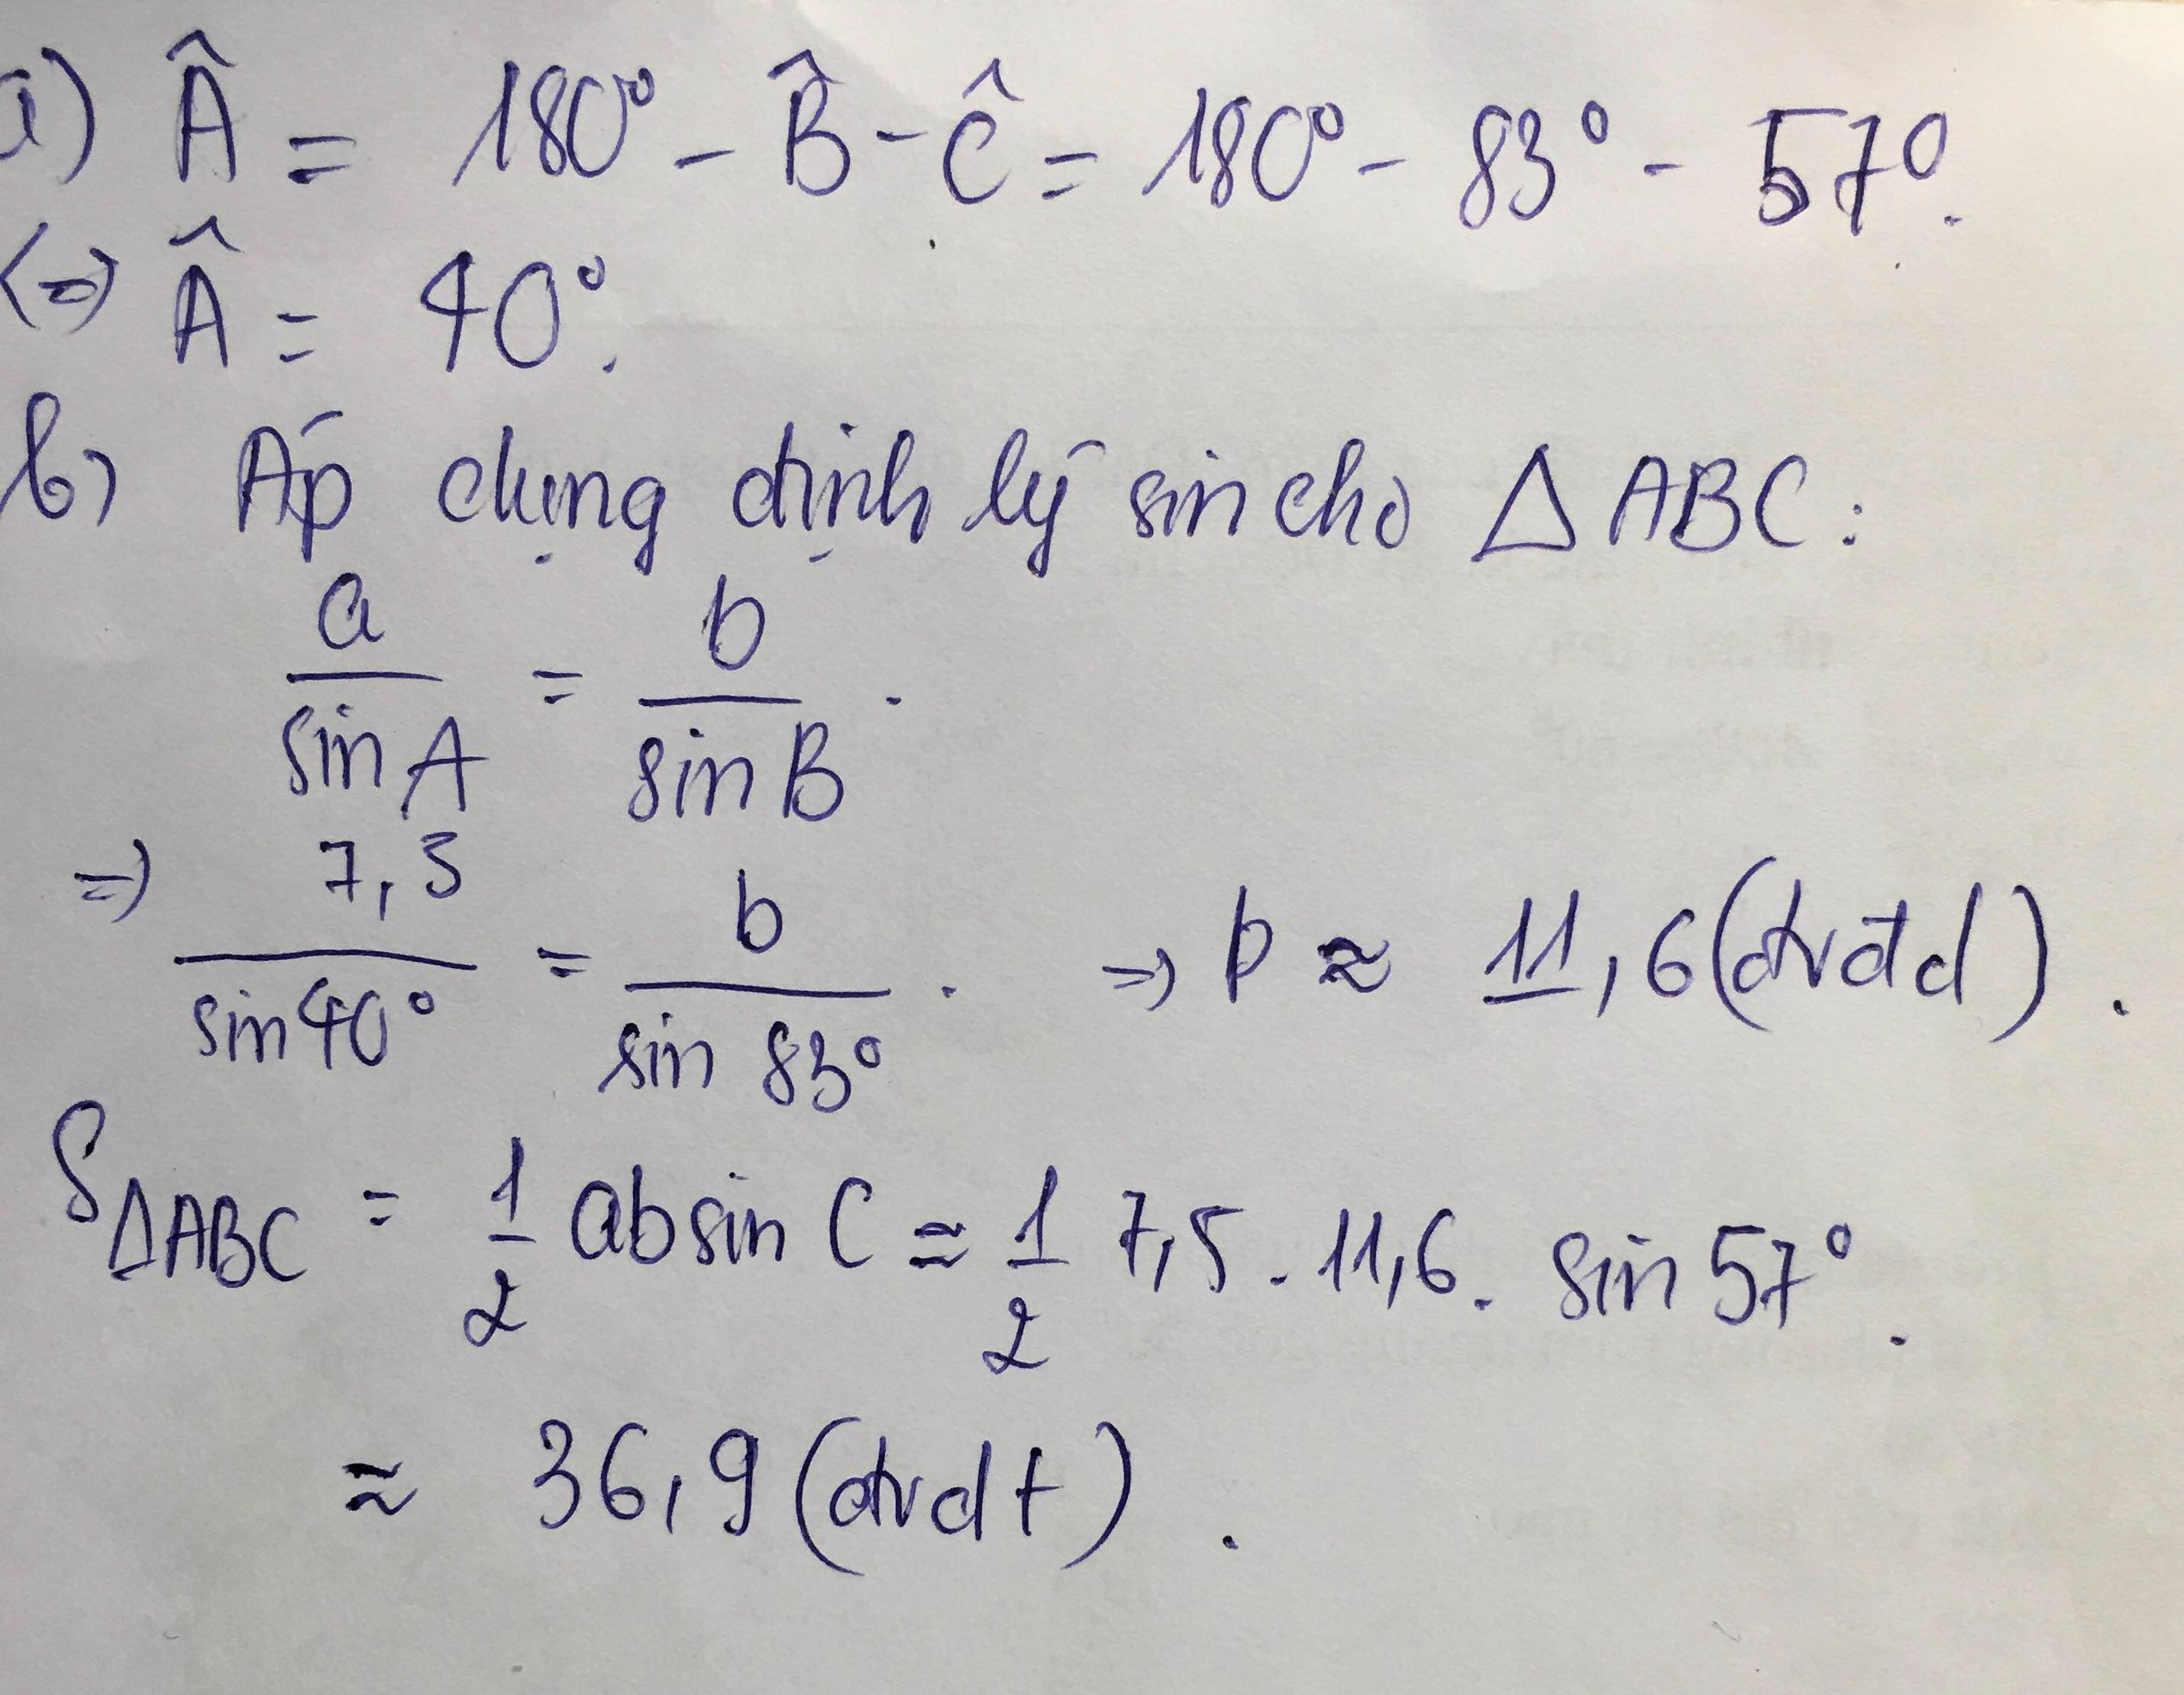 a) Â = 180° - B̂ - Ĉ = 180° - 83° - 57°.
(=) Â = 40°.
b) Áp dụng định lý sin cho △ ABC:
a/sin A = b/sin B.
=) 7,5/sin 40° = b/sin 83°. =) b ≈ 11,6 (đvđd).
S△ABC = 1/2 ab sin C ≈ 1/2 7,5 . 11,6 . sin 57°.
≈ 36,9 (đvdt).